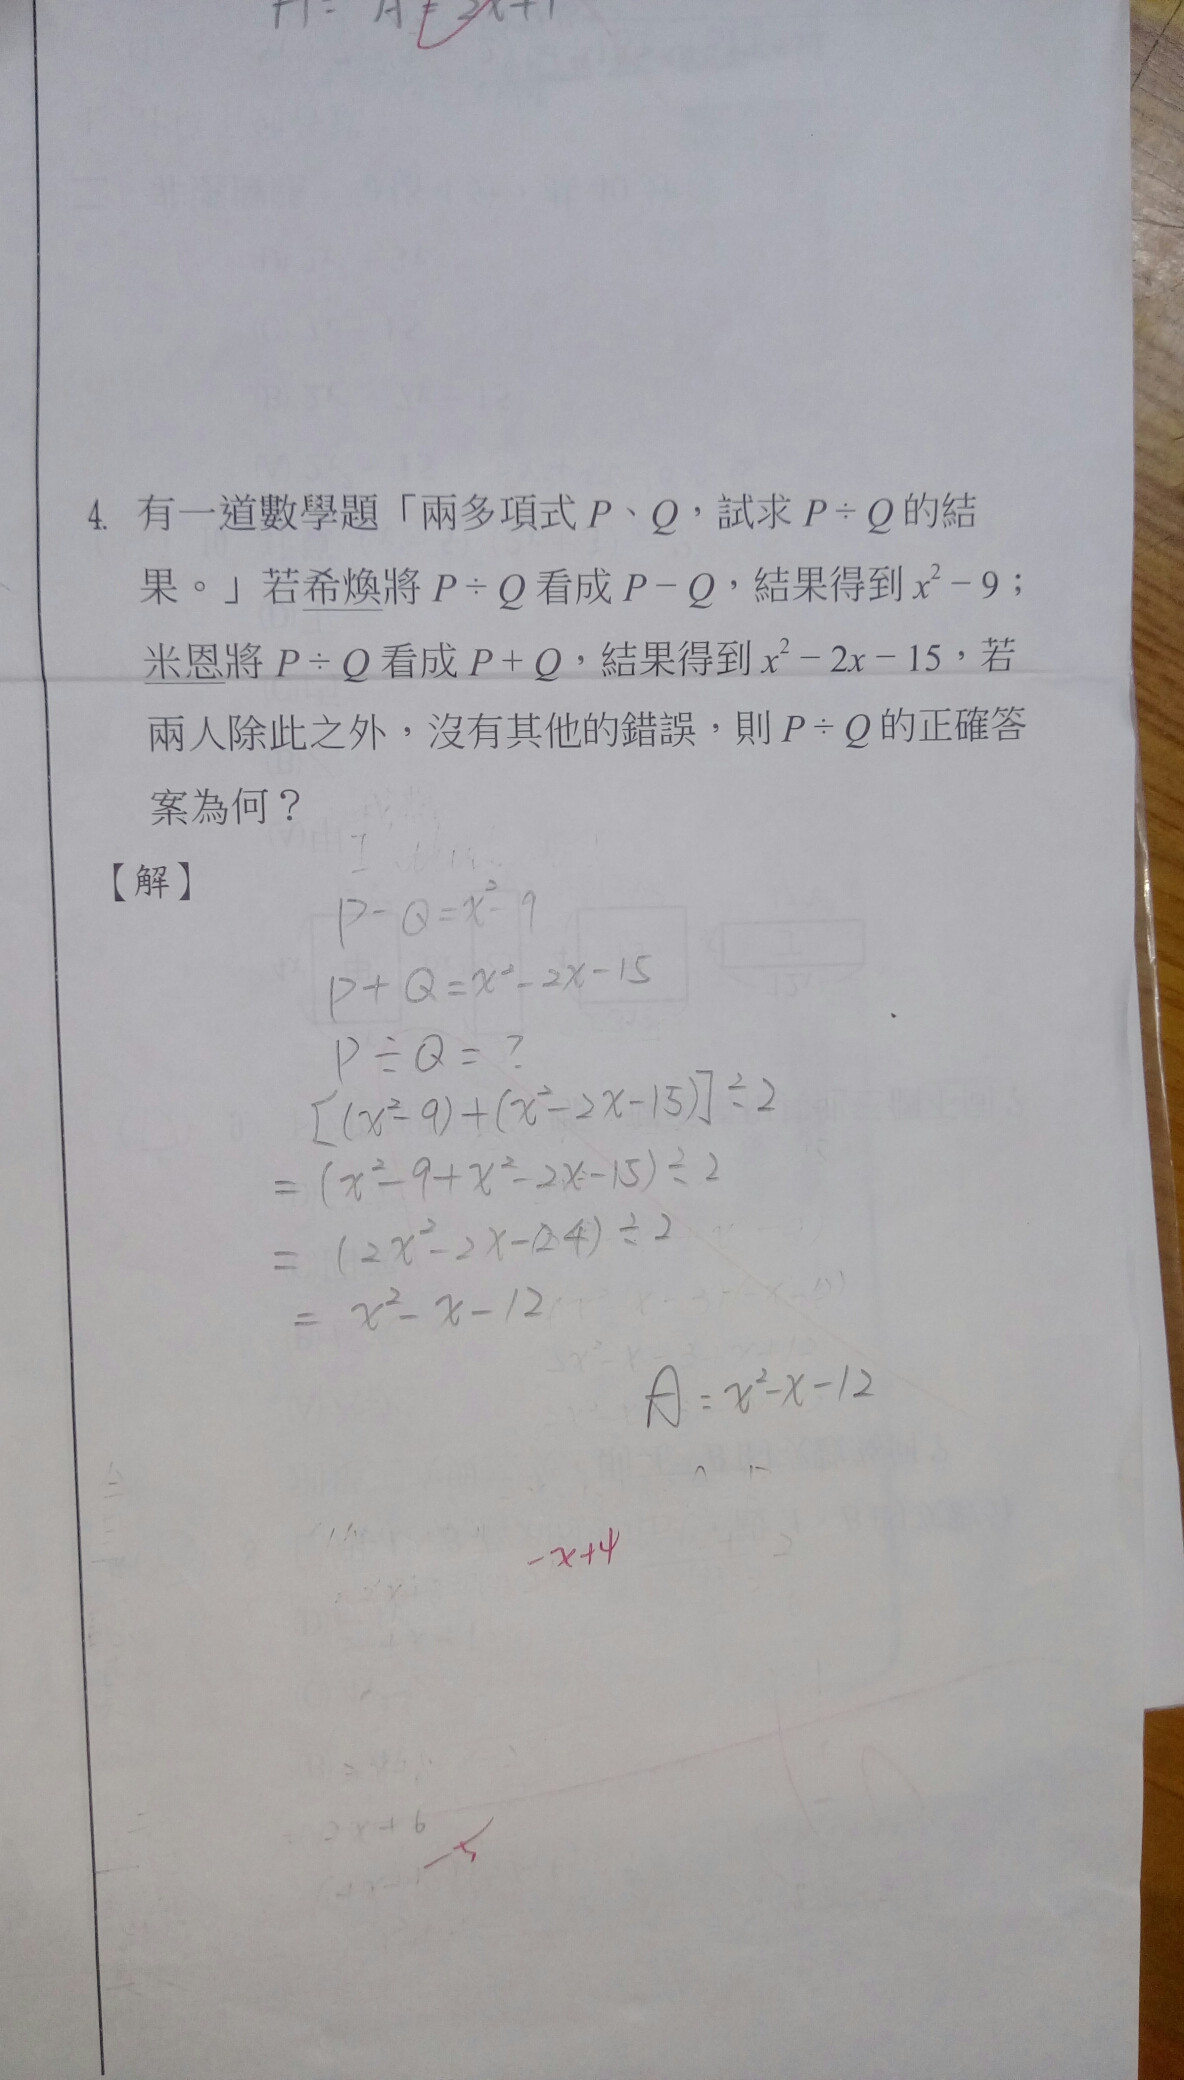 A = 2x+1
4. 有一道數學題「兩多項式 P、Q，試求 P÷Q 的結
果。」若希煥將 P÷Q 看成 P－Q，結果得到 x²－9；
米恩將 P÷Q 看成 P+Q，結果得到 x²－2x－15，若
兩人除此之外，沒有其他的錯誤，則 P÷Q 的正確答
案為何？
【解】
P-Q=x²-9
P+Q=x²-2x-15
P÷Q=?
[(x²-9)+(x²-2x-15)]÷2
=(x²-9+x²-2x-15)÷2
=(2x²-2x-24)÷2
=x²-x-12
A=x²-x-12
-x+4
-5